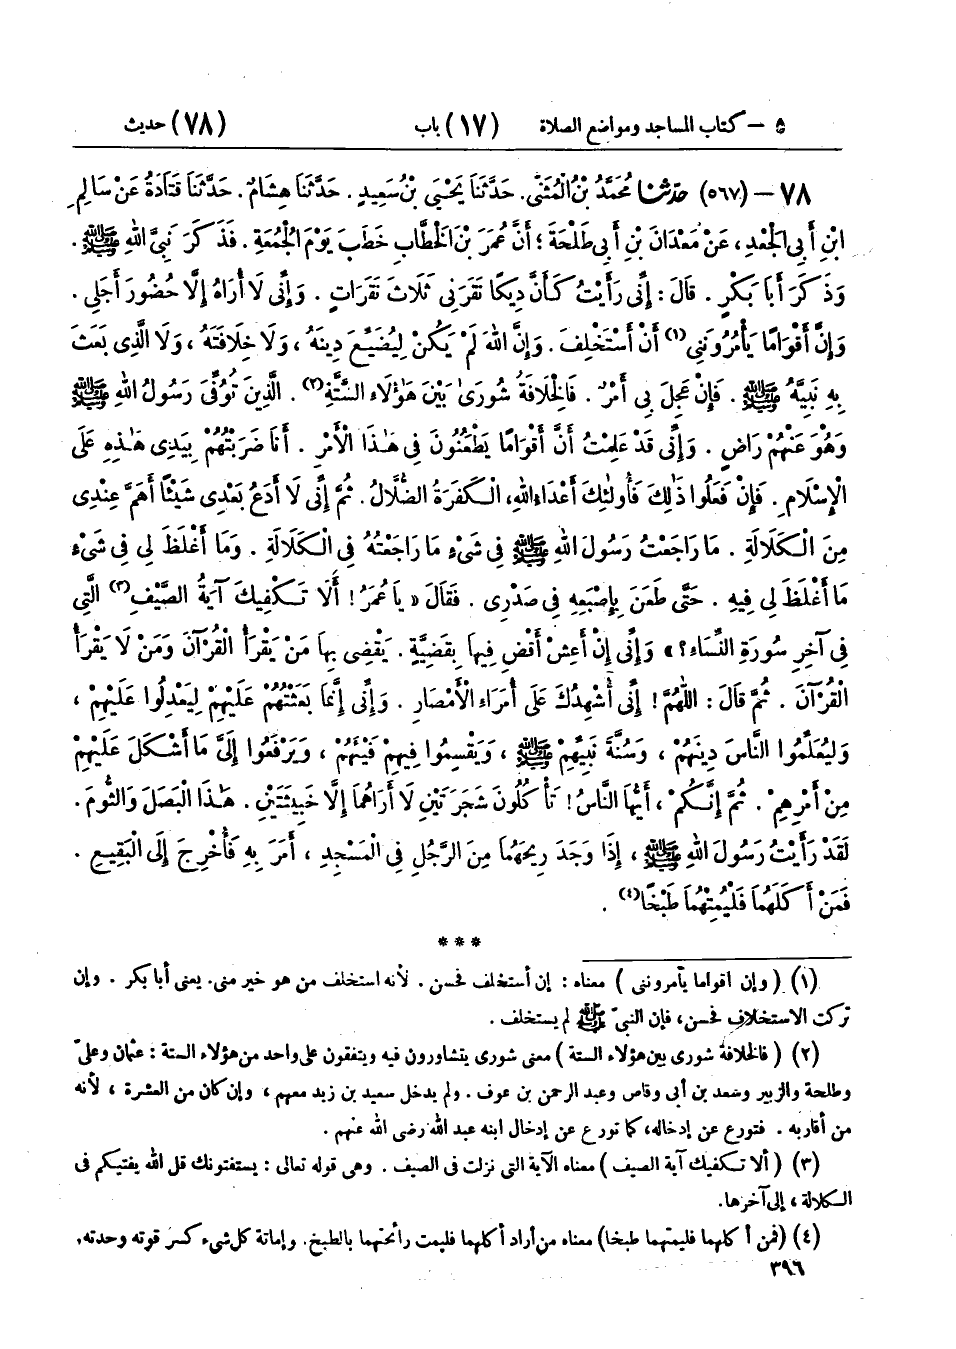 ٥ — كتاب المساجد ومواضع الصلاة (١٧) باب (٧٨) حديث
٧٨ — (٥٦٧) حَدَّثَنَا مُحَمَّدُ بْنُ الْمُثَنَّى. حَدَّثَنَا يَحْيَى بْنُ سَعِيدٍ. حَدَّثَنَا هِشَامٌ. حَدَّثَنَا قَتَادَةُ عَنْ سَالِمِ
ابْنِ أَبِي الْجَعْدِ، عَنْ مَعْدَانَ بْنِ أَبِي طَلْحَةَ؛ أَنَّ عُمَرَ بْنَ الْخَطَّابِ خَطَبَ يَوْمَ الْجُمُعَةِ. فَذَكَرَ نَبِيَّ اللهِ ﷺ.
وَذَكَرَ أَبَا بَكْرٍ. قَالَ: إِنِّي رَأَيْتُ كَأَنَّ دِيكًا نَقَرَنِي ثَلَاثَ نَقَرَاتٍ. وَإِنِّي لَا أُرَاهُ إِلَّا حُضُورَ أَجَلِي.
وَإِنَّ أَقْوَامًا يَأْمُرُونَنِي(١) أَنْ أَسْتَخْلِفَ. وَإِنَّ اللهَ لَمْ يَكُنْ لِيُضَيِّعَ دِينَهُ، وَلَا خِلَافَتَهُ، وَلَا الَّذِي بَعَثَ
بِهِ نَبِيَّهُ ﷺ. فَإِنْ عَجِلَ بِي أَمْرٌ. فَالْخِلَافَةُ شُورَىٰ بَيْنَ هَٰؤُلَاءِ السِّتَّةِ(٢). الَّذِينَ تُوُفِّيَ رَسُولُ اللهِ ﷺ
وَهُوَ عَنْهُمْ رَاضٍ. وَإِنِّي قَدْ عَلِمْتُ أَنَّ أَقْوَامًا يَطْعَنُونَ فِي هَٰذَا الْأَمْرِ. أَنَا ضَرَبْتُهُمْ بِيَدِي هَٰذِهِ عَلَى
الْإِسْلَامِ. فَإِنْ فَعَلُوا ذَٰلِكَ فَأُولَٰئِكَ أَعْدَاءُ اللهِ، الْكَفَرَةُ الضُّلَّالُ. ثُمَّ إِنِّي لَا أَدَعُ بَعْدِي شَيْئًا أَهَمَّ عِنْدِي
مِنَ الْكَلَالَةِ. مَا رَاجَعْتُ رَسُولَ اللهِ ﷺ فِي شَيْءٍ مَا رَاجَعْتُهُ فِي الْكَلَالَةِ. وَمَا أَغْلَظَ لِي فِي شَيْءٍ
مَا أَغْلَظَ لِي فِيهِ. حَتَّى طَعَنَ بِإِصْبَعِهِ فِي صَدْرِي. فَقَالَ «يَا عُمَرُ! أَلَا تَكْفِيكَ آيَةُ الصَّيْفِ(٣) الَّتِي
فِي آخِرِ سُورَةِ النِّسَاءِ؟» وَإِنِّي إِنْ أَعِشْ أَقْضِ فِيهَا بِقَضِيَّةٍ. يَقْضِي بِهَا مَنْ يَقْرَأُ الْقُرْآنَ وَمَنْ لَا يَقْرَأُ
الْقُرْآنَ. ثُمَّ قَالَ: اللَّهُمَّ! إِنِّي أُشْهِدُكَ عَلَى أُمَرَاءِ الْأَمْصَارِ. وَإِنِّي إِنَّمَا بَعَثْتُهُمْ عَلَيْهِمْ لِيَعْدِلُوا عَلَيْهِمْ،
وَلِيُعَلِّمُوا النَّاسَ دِينَهُمْ، وَسُنَّةَ نَبِيِّهِمْ ﷺ، وَيَقْسِمُوا فِيهِمْ فَيْئَهُمْ، وَيَرْفَعُوا إِلَيَّ مَا أَشْكَلَ عَلَيْهِمْ
مِنْ أَمْرِهِمْ. ثُمَّ إِنَّكُمْ، أَيُّهَا النَّاسُ! تَأْكُلُونَ شَجَرَتَيْنِ لَا أَرَاهُمَا إِلَّا خَبِيثَتَيْنِ. هَٰذَا الْبَصَلَ وَالثُّومَ.
لَقَدْ رَأَيْتُ رَسُولَ اللهِ ﷺ، إِذَا وَجَدَ رِيحَهُمَا مِنَ الرَّجُلِ فِي الْمَسْجِدِ، أَمَرَ بِهِ فَأُخْرِجَ إِلَى الْبَقِيعِ.
فَمَنْ أَكَلَهُمَا فَلْيُمِتْهُمَا طَبْخًا(٤).
***
(١) (وإن أقواما يأمروننى) معناه: إن أستخلف فحسن. لأنه استخلف من هو خير منى. يعنى أبا بكر. وإن
تركت الاستخلاف فحسن، فإن النبىّ ﷺ لم يستخلف.
(٢) (فالخلافة شورى بين هؤلاء الستة) معنى شورى يتشاورون فيه ويتفقون على واحد من هؤلاء الستة: عثمان وعلىّ
وطلحة والزبير وسعد بن أبى وقاص وعبد الرحمن بن عوف. ولم يدخل سعيد بن زيد معهم، وإن كان من العشرة، لأنه
من أقاربه. فتورع عن إدخاله، كما تورع عن إدخال ابنه عبد الله رضى الله عنهم.
(٣) (ألا تكفيك آية الصيف) معناه الآية التى نزلت فى الصيف. وهى قوله تعالى: يستفتونك قل الله يفتيكم فى
الكلالة، إلى آخرها.
(٤) (فمن أكلهما فليمتهما طبخا) معناه من أراد أكلهما فليمت رائحتهما بالطبخ. وإماتة كل شىء كسر قوته وحدته.
٣٩٦